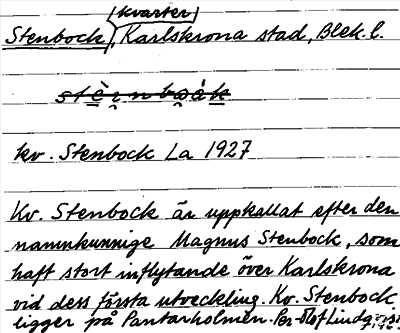 kvarter
Stenbock, Karlskrona stad, Blek. l.
kv. Stenbock La 1927
Kv. Stenbock är uppkallat efter den
namnkunnige Magnus Stenbock, som
haft stort inflytande över Karlskrona
vid dess första utveckling. Kv. Stenbock
ligger på Pantarholmen. Per-Olof Lindgren